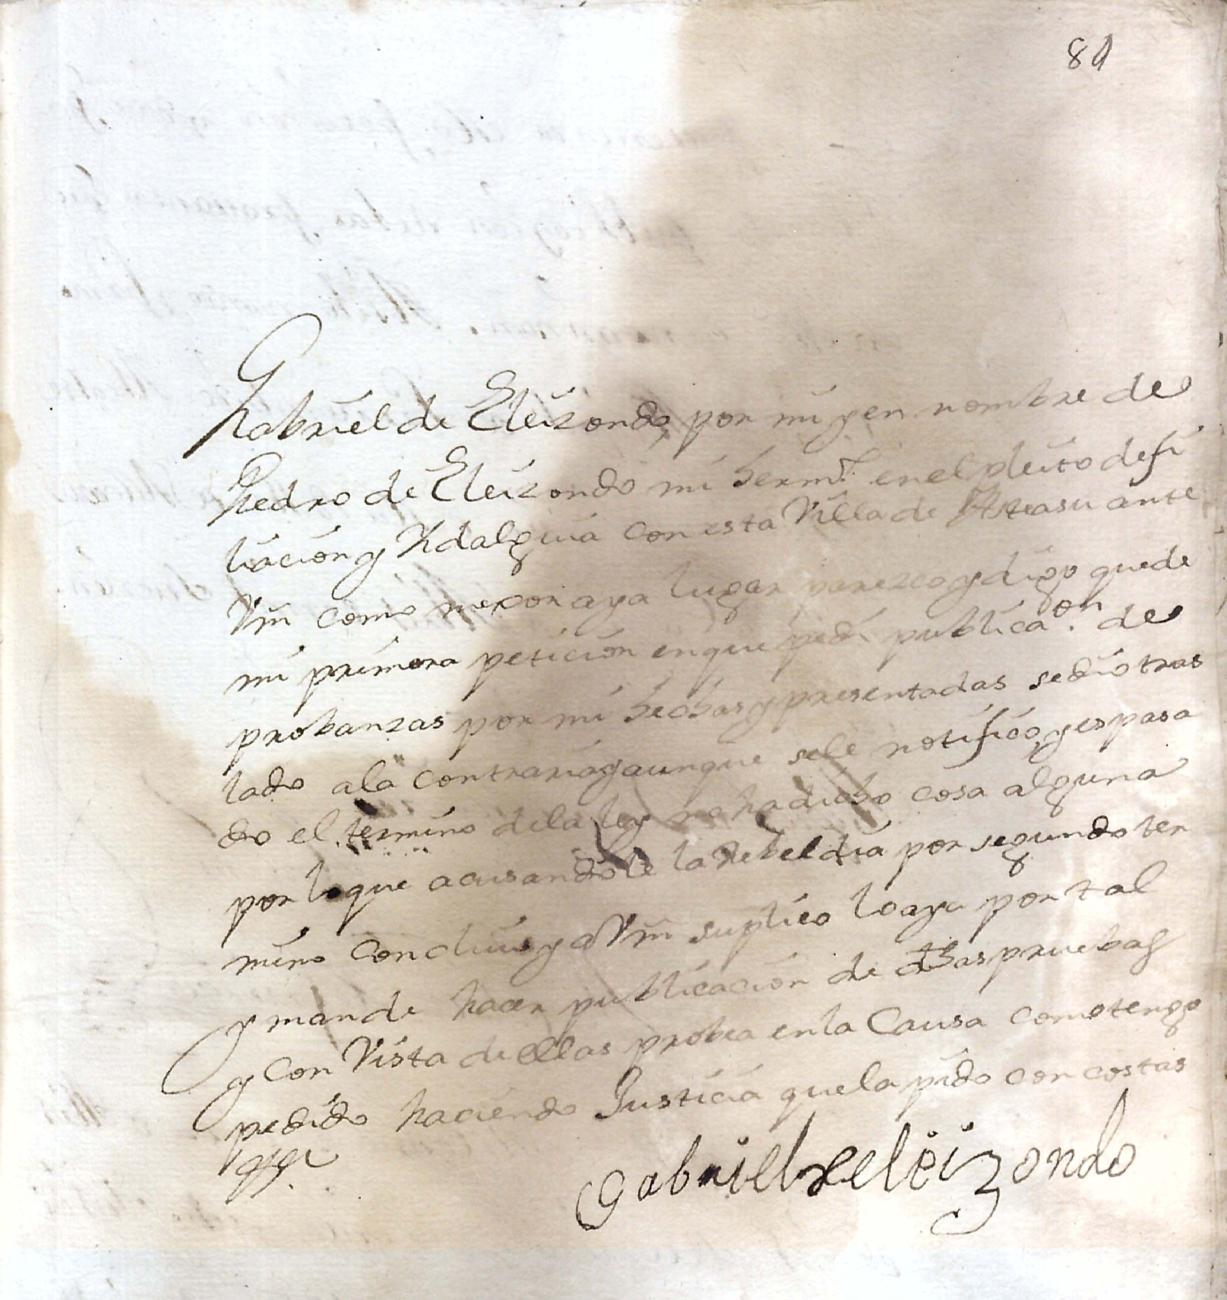 81
Gabriel de Eleizondo por mi y en nombre de
Pedro de Eleizondo mi herm.º en el pleito de fi
liacion y Ydalguia con esta Villa de Ateasu ante
Vm como mexor aya lugar parezco y digo que de
mi primera peticion en que pedi publica.on de
probanzas por mi hechas y presentadas se dio tras
lado a la contraria y aunque se le notifico y es pasa
do el termino de la ley no ha dicho cosa alguna
por lo que acusandole la Rebeldia por segundo ter
mino concluio y a Vm suplico lo aya por tal
y mande hacer publicacion de dhas pruebas
y con Vista de ellas probea en la Causa como tengo
pedido haciendo Justicia que la pido con costas
Gabriel de eleizondo